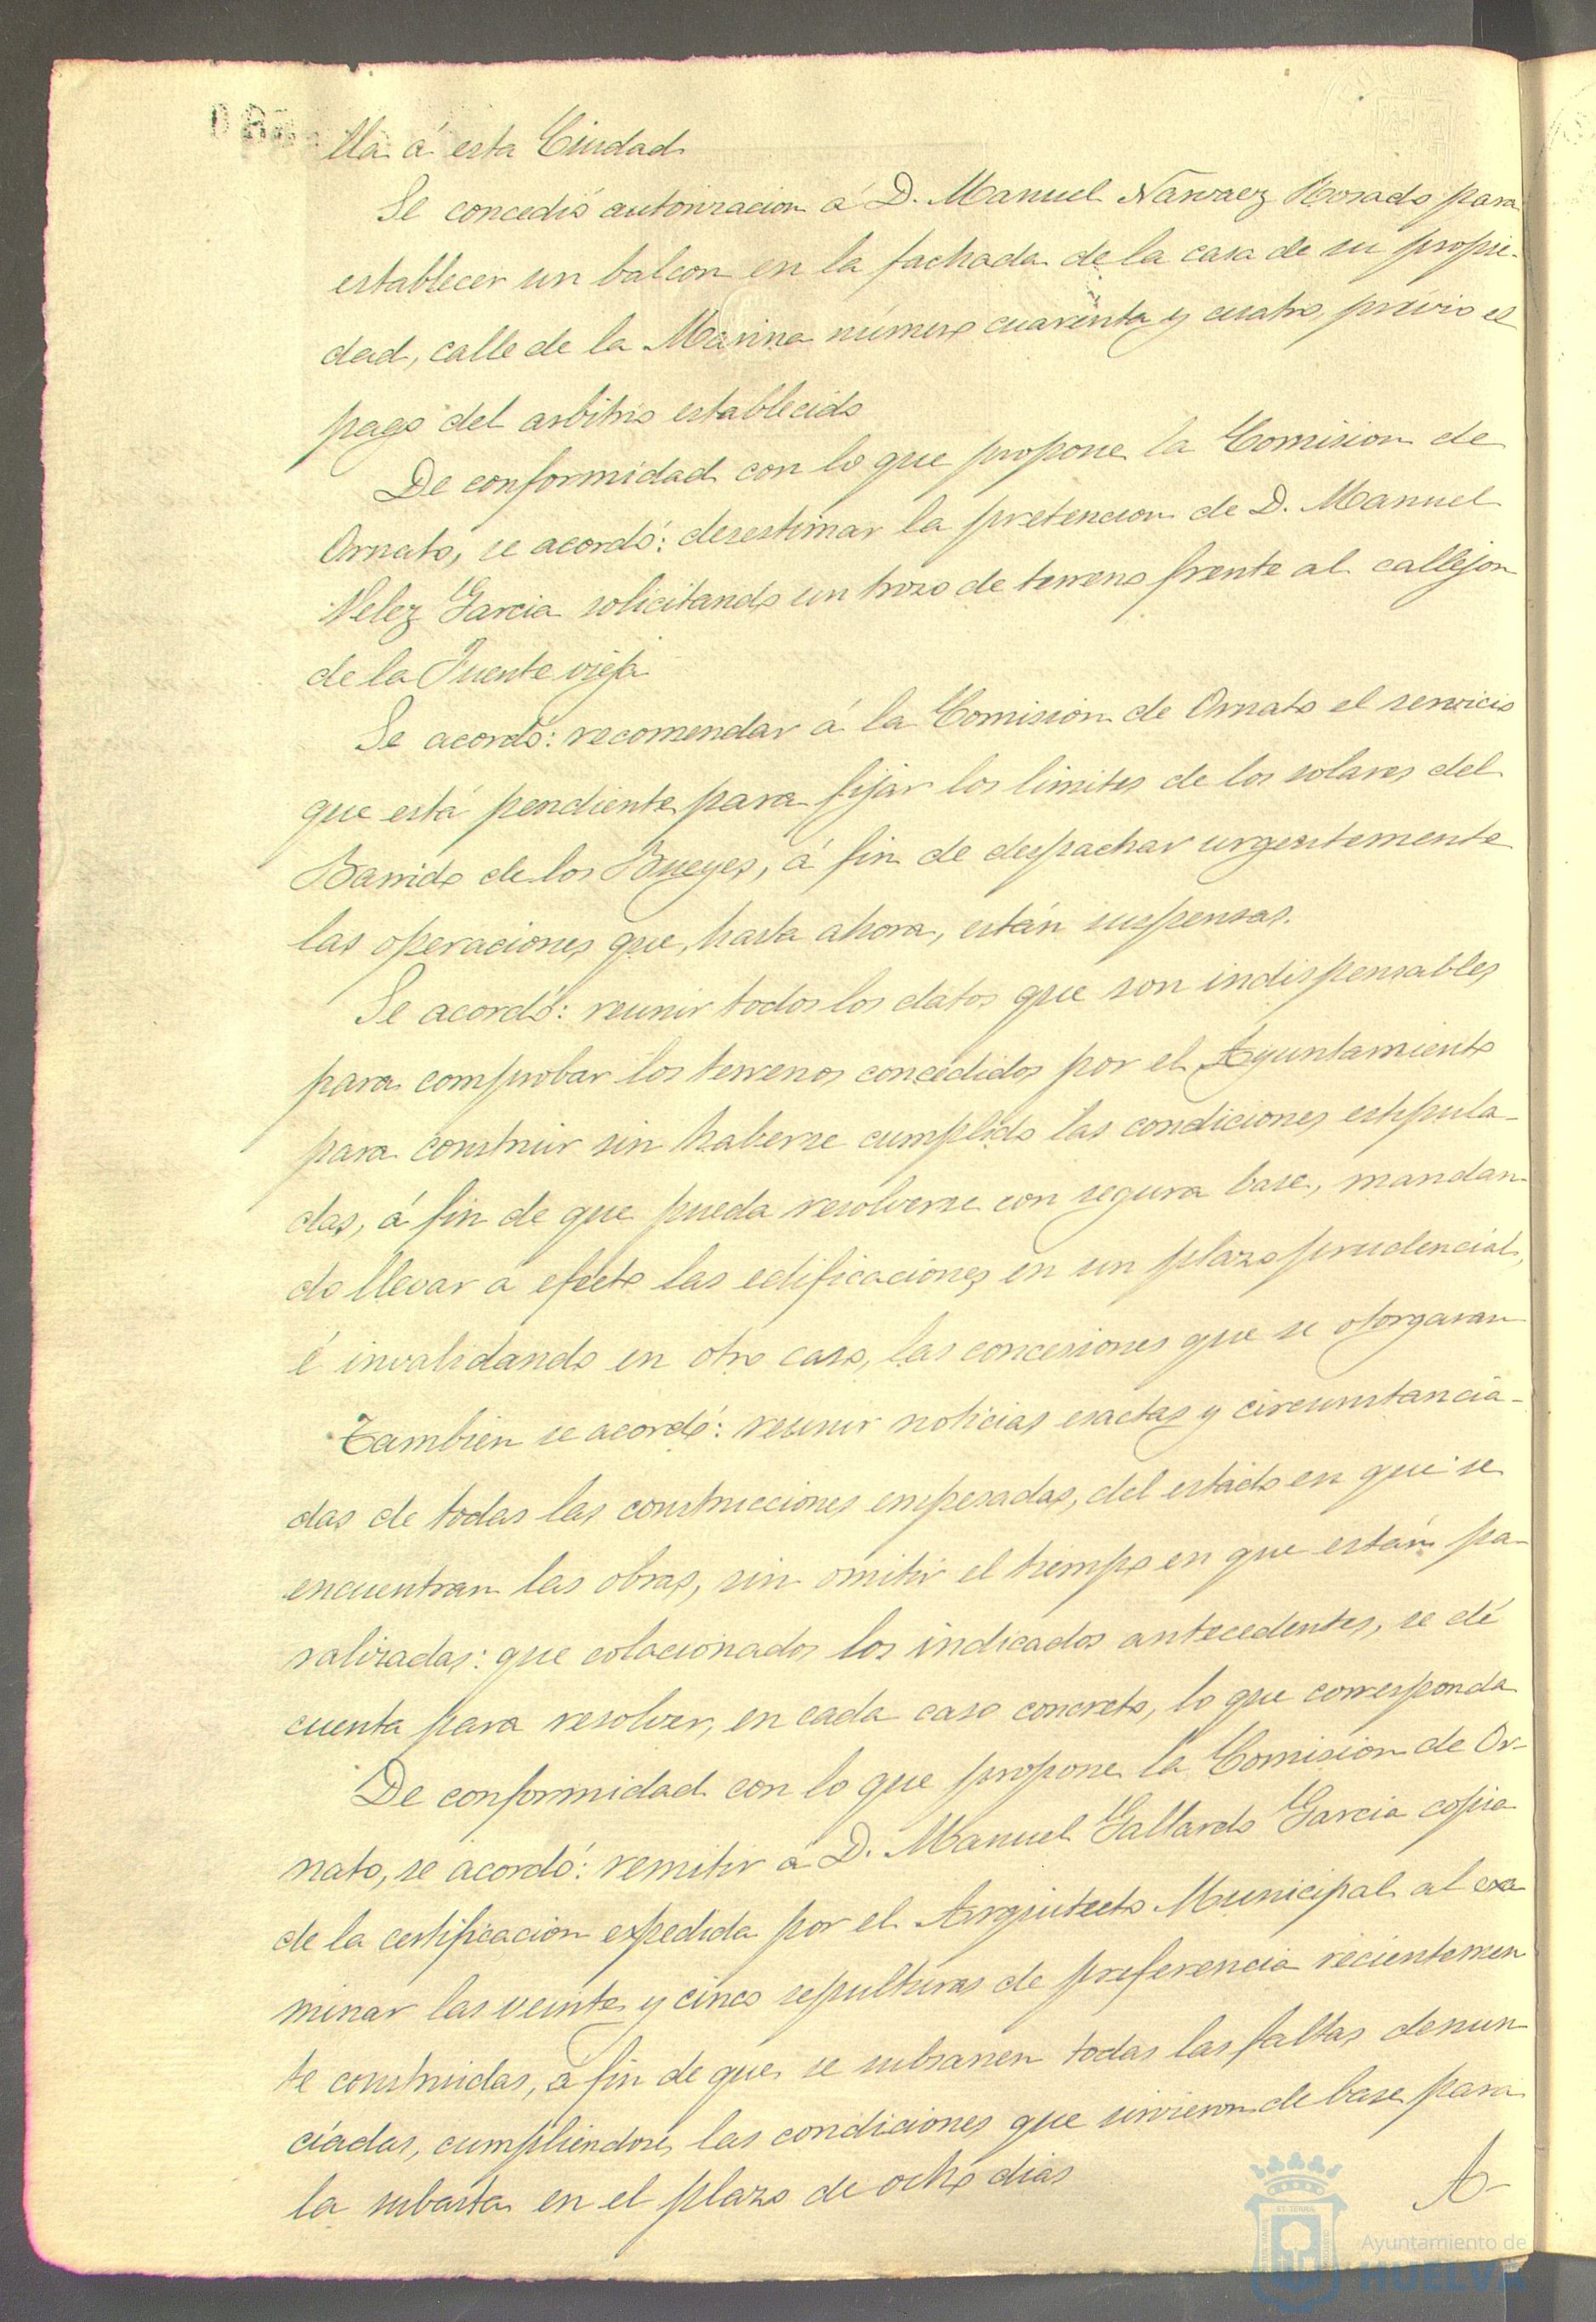 lla á esta Ciudad
Se concedió autorizacion á D. Manuel Narvaez Rosado para
establecer un balcon en la fachada de la casa de su propie-
dad, calle de la Marina número cuarenta y cuatro, prévio el
pago del arbitrio establecido
De conformidad con lo que propone la Comision de
Ornato, se acordó: desestimar la pretencion de D. Manuel
Velez Garcia solicitando un trozo de terreno frente al callejon
de la Fuente vieja
Se acordó: recomendar á la Comision de Ornato el servicio
que está pendiente para fijar los limites de los solares del
Barrido de los Bueyes, á fin de despachar urgentemente
las operaciones que, hasta ahora, están suspensas.
Se acordó: reunir todos los datos que son indispensables
para comprobar los terrenos concedidos por el Ayuntamiento
para construir sin haberse cumplido las condiciones estipula-
das, á fin de que pueda resolverse con segura base, mandan-
do llevar á efecto las edificaciones en un plazo prudencial,
é invalidando en otro caso, las concesiones que se otorgaran
Tambien se acordó: reunir noticias exactas y circunstancia-
das de todas las construcciones empesadas, del estado en que se
encuentran las obras, sin omitir el tiempo en que están pa-
ralizadas: que colacionados los indicados antecedentes, se dé
cuenta para resolver, en cada caso concreto, lo que corresponda
De conformidad con lo que propone la Comision de Or-
nato, se acordó: remitir á D. Manuel Gallardo Garcia copia
de la certificacion expedida por el Arquitecto Municipal al exa
minar las veinte y cinco sepulturas de preferencia recientemen
te construidas, á fin de que se subsanen todas las faltas denun-
ciadas, cumpliendose las condiciones que sirvieron de base para
la subasta en el plazo de ocho dias
A-
Ayuntamiento de
HUELVA